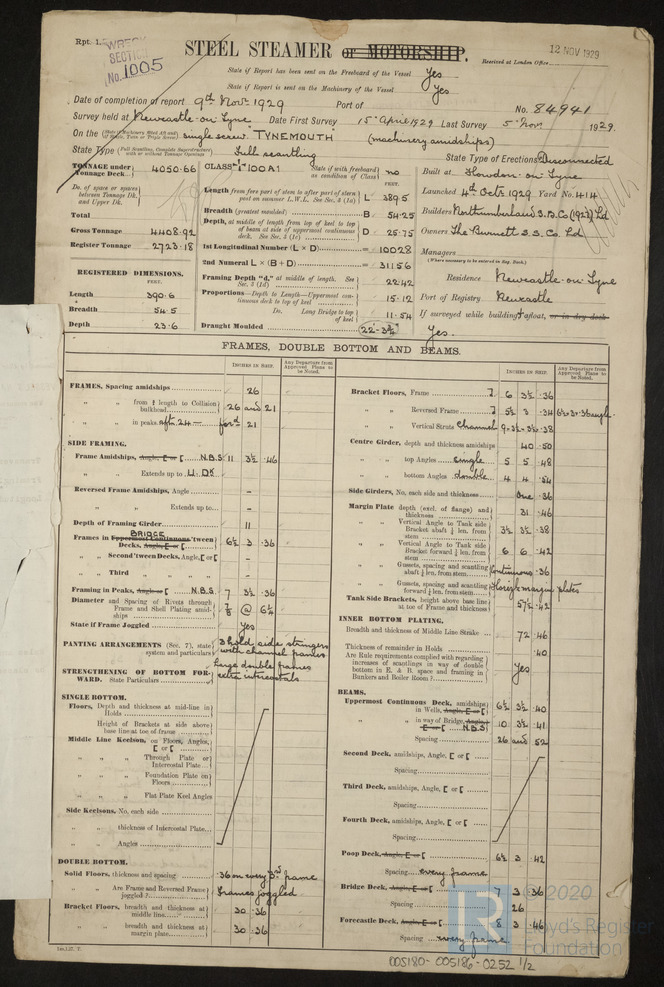 Rpt. 1.
WRECK
SECTION
No. 1005
STEEL STEAMER or MOTORSHIP.
12 NOV 1929
Received at London Office
State if Report has been sent on the Freeboard of the Vessel Yes
State if Report is sent on the Machinery of the Vessel Yes
Date of completion of report 9th Novr 1929 Port of No. 84941
Survey held at Newcastle-on-Tyne Date First Survey 15th April 1929 Last Survey 5th Nov 1929
On the single screw "TYNEMOUTH" (machinery amidships)
State Type Full scantling State Type of Erections Disconnected
TONNAGE under Tonnage Deck 4050.66
Do. of space or spaces between Tonnage Dk. and Upper Dk.
Total
Gross Tonnage 4408.92
Register Tonnage 2723.18
REGISTERED DIMENSIONS.
FEET.
Length 390.6
Breadth 54.5
Depth 23.6
CLASS 100A1 State if with freeboard as condition of Class no
FEET.
Length from fore part of stem to after part of stern post on summer L.W.L. See Sec. 3 (1a) L 389.5
Breadth (greatest moulded) B 54.25
Depth, at middle of length from top of keel to top of beam at side of uppermost continuous deck. See Sec. 3 (1c) D 25.75
1st Longitudinal Number (L × D) = 10028
2nd Numeral L × (B + D) = 31156
Framing Depth "d," at middle of length. See Sec. 3 (1d) 22.42
Proportions—Depth to Length—Uppermost continuous deck to top of keel 15.12
Do. Long Bridge to top of keel 11.54
Draught Moulded 22-3¾"
Built at Howdon-on-Tyne
Launched 4th Octr 1929 Yard No. 414
Builders Northumberland S.B.Co (1927) Ld
Owners The Burnett S.S. Co. Ld
Managers
(Where necessary to be entered in Reg. Book.)
Residence Newcastle-on-Tyne
Port of Registry Newcastle
If surveyed while building, afloat, or in dry dock
Yes.
FRAMES, DOUBLE BOTTOM AND BEAMS.
INCHES IN SHIP. Any Departure from Approved Plans to be Noted.
FRAMES, Spacing amidships 26
" " from ⅕ length to Collision bulkhead 26 and 21
" " in peaks Aft. 24 for'd 21
SIDE FRAMING.
Frame Amidships, Angle, [ or [ N.B.S 11 3½ .46
" " Extends up to U. Dk
Reversed Frame Amidships, Angle -
" " Extends up to -
Depth of Framing Girder 11
BRIDGE
Frames in Uppermost Continuous 'tween Decks, Angle, [ or [ 6½ 3 .36
" Second 'tween Decks, Angle, [ or [ -
" Third " " " " -
Framing in Peaks, Angle, [ or [ N.B.S. 7 3½ .36
Diameter and Spacing of Rivets through Frame and Shell Plating amidships ⅞ @ 6¼
State if Frame Joggled Yes
PANTING ARRANGEMENTS (Sec. 7), state system and particulars 3 hold side stringers with channel frames
STRENGTHENING OF BOTTOM FORWARD. State Particulars Large double frames extra intercostals
SINGLE BOTTOM.
Floors, Depth and thickness at mid-line in Holds
Height of Brackets at side above base line at toe of frame
Middle Line Keelson, on Floors, Angles, [ or [
" " Through Plate or Intercostal Plate
" " Foundation Plate on Floors
" " Flat Plate Keel Angles
Side Keelsons, No. each side
" " thickness of Intercostal Plate
" " Angles
DOUBLE BOTTOM.
Solid Floors, thickness and spacing .36 on every 3rd frame
" " Are Frame and Reversed Frame joggled? Frames joggled
Bracket Floors, breadth and thickness at middle line 30 .36
" " breadth and thickness at margin plate 30 .36
INCHES IN SHIP. Any Departure from Approved Plans to be Noted.
Bracket Floors, Frame 6 3½ .36
" " Reversed Frame 5½ 3 .34
" " Vertical Struts Channel 9 × 3½ × 3½ .38
Centre Girder, depth and thickness amidships 40 .50
" " top Angles single 5 5 .48
" " bottom Angles double 4 4 .54
Side Girders, No. each side and thickness One .36
Margin Plate depth (excl. of flange) and thickness 31 .46
" " Vertical Angle to Tank side Bracket abaft ¼ len. from stem 3½ 3½ .38
" " Vertical Angle to Tank side Bracket forward ¼ len. from stem 6 6 .42
" " Gussets, spacing and scantling abaft ¼ len. from stem Continuous .36
" " Gussets, spacing and scantling forward ¼ len. from stem Horizl margin plates
Tank Side Brackets, height above base line at toe of Frame and thickness 57½ .42
INNER BOTTOM PLATING.
Breadth and thickness of Middle Line Strake 72 .46
Thickness of remainder in Holds .40
Are Rule requirements complied with regarding increases of scantlings in way of double bottom in E. & B. space and framing in Bunkers and Boiler Room? Yes
BEAMS.
Uppermost Continuous Deck, amidships in Wells, Angle, [ or [ 6½ 3½ .40
" " in way of Bridge, Angle, [ or [ N.B.S 10 3½ .41
Spacing 26 and 52
Second Deck, amidships, Angle, [ or [
Spacing
Third Deck, amidships, Angle, [ or [
Spacing
Fourth Deck, amidships, Angle, [ or [
Spacing
Poop Deck, Angle, [ or [ 6½ 3 .42
Spacing every frame
Bridge Deck, Angle, [ or [ 7 3 .36
Spacing 26
Forecastle Deck, Angle, [ or [ 8 3 .46
Spacing every frame
© 2020
Lloyd's Register
Foundation
005180-005186-0252 1/2